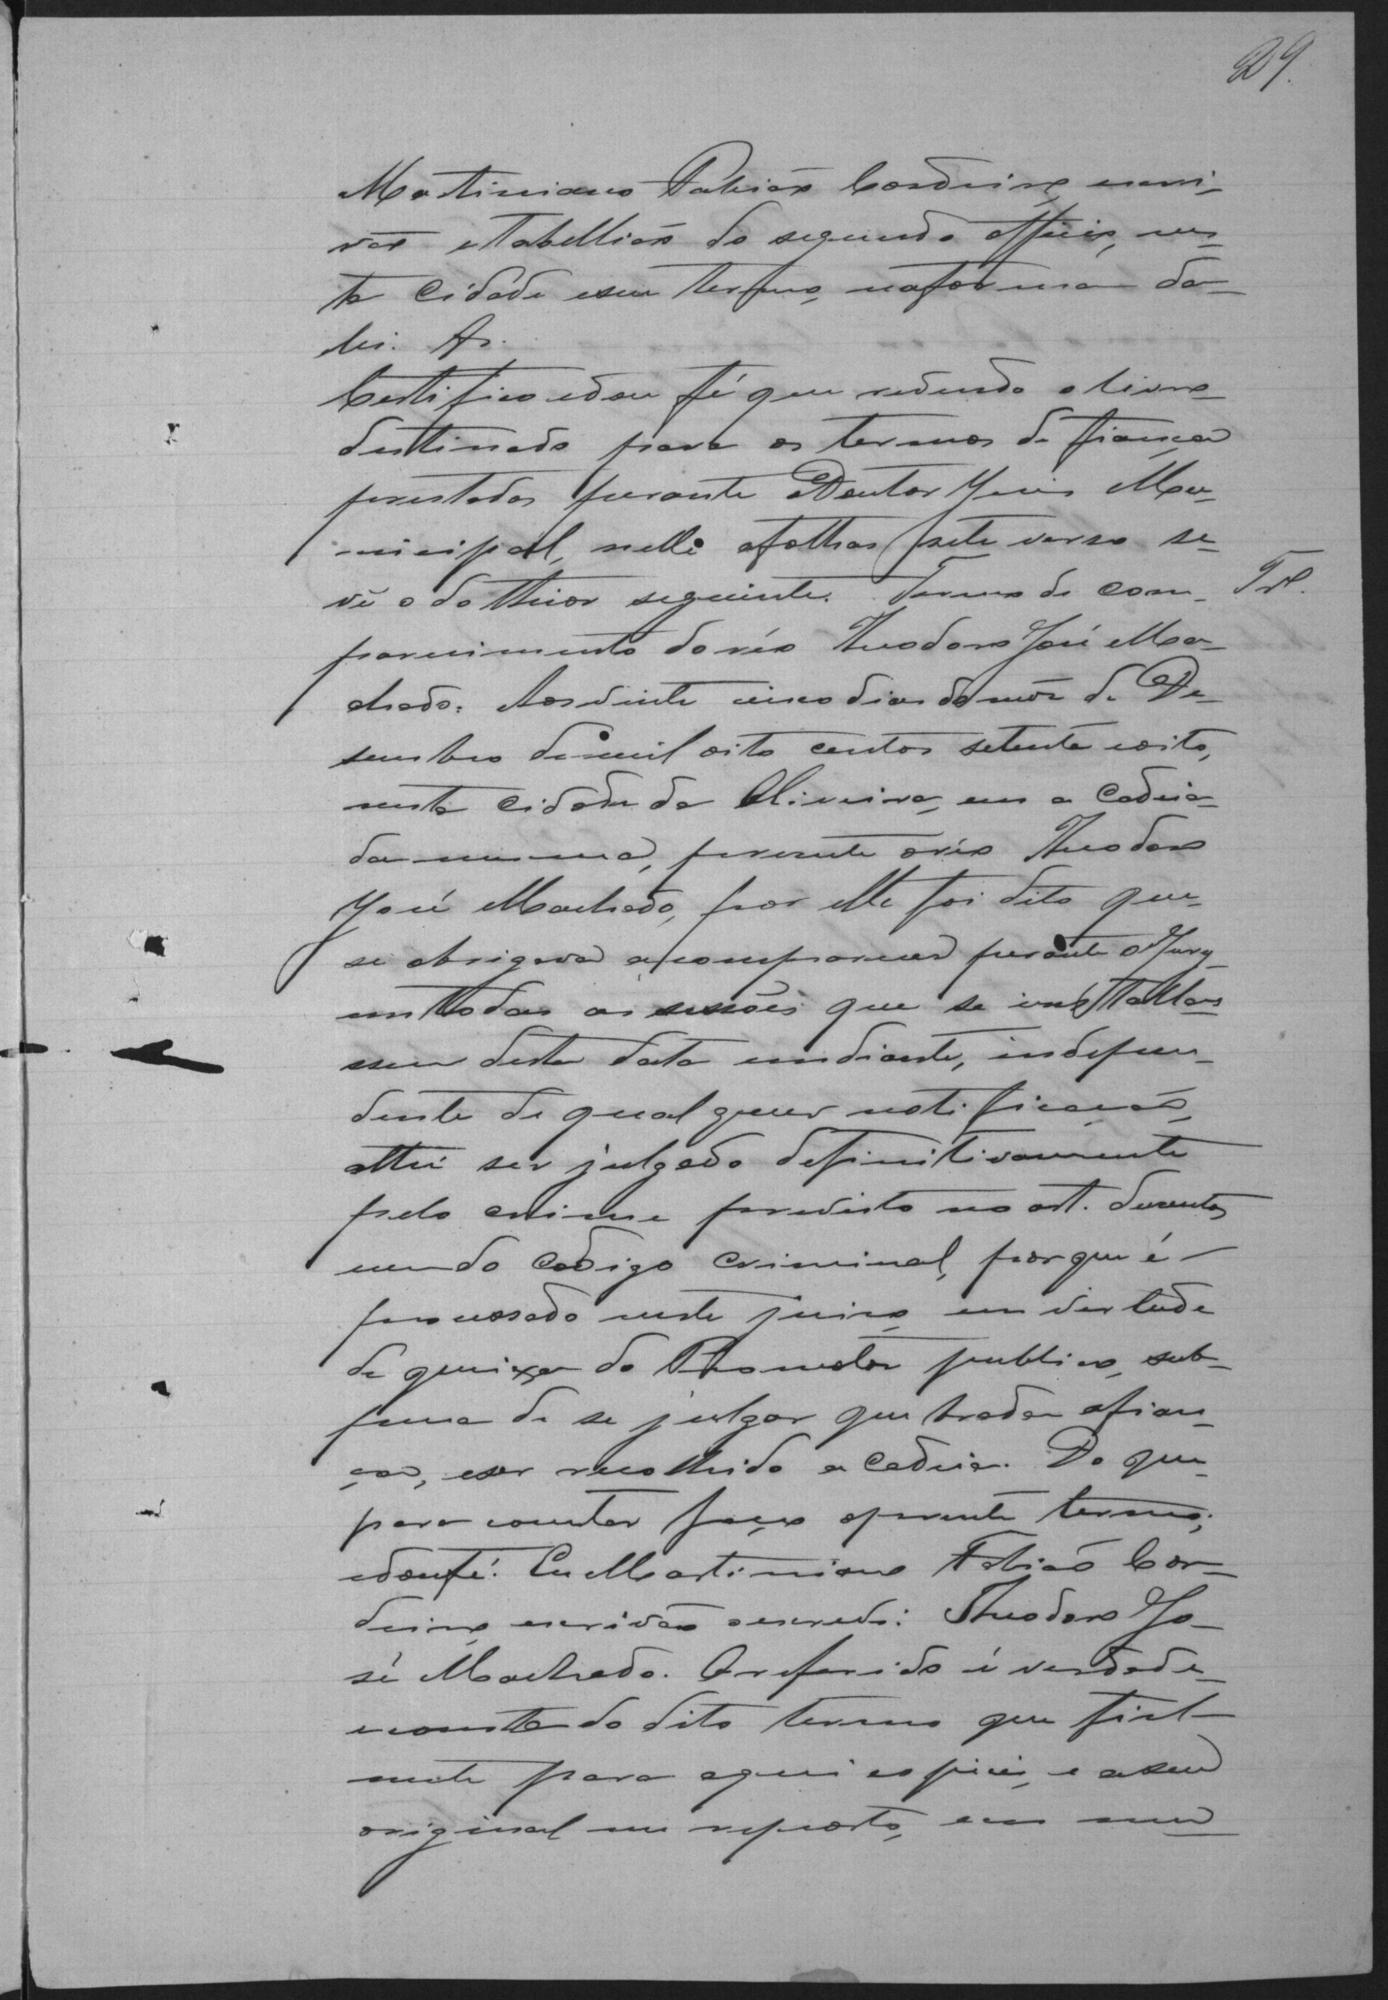 29.
Martiniano Fabião Cordeiro, escri-
vão e Tabellião do segundo officio, nes-
ta Cidade e seu termo, na forma da
lei. &.
Certifico e dou fé que revendo o livro
destinado para os termos de fiança
prestados perante o Doutor Juis Mu-
nicipal, nelle a folhas sete verso se
vê o do theor seguinte. Termo de com-
Tr.
parecimento do réo Theodoro José Ma-
chado. Aos vinte cinco dias do mês de De-
sembro de mil oito centos setenta e oito,
nesta cidade da Oliveira, em a Cadeia
da mesma, presente o réo Theodoro
José Machado, por elle foi dito que
se obrigava a comparecer perante o Jury
em todas as sessões que se installas-
sem desta data em diante, indepen-
dente de qualquer notificação,
athé ser julgado definitivamente
pelo crime previsto no art. duzentos
um do codigo criminal, porque é
processado neste juizo, em virtude
de queixa do Promotor publico, sub-
pena de se julgar quebrada a fian-
ça, e ser recolhido a cadeia. Do que
para constar faço o presente termo,
e dou fé. Eu Martiniano Fabião Cor-
deiro, escrivão o escrevi: Theodoro Jo-
sé Machado. O referido é verdade
e consta do dito termo que fiel-
mente para aqui copiei, e a seu
original me reporto, em meu